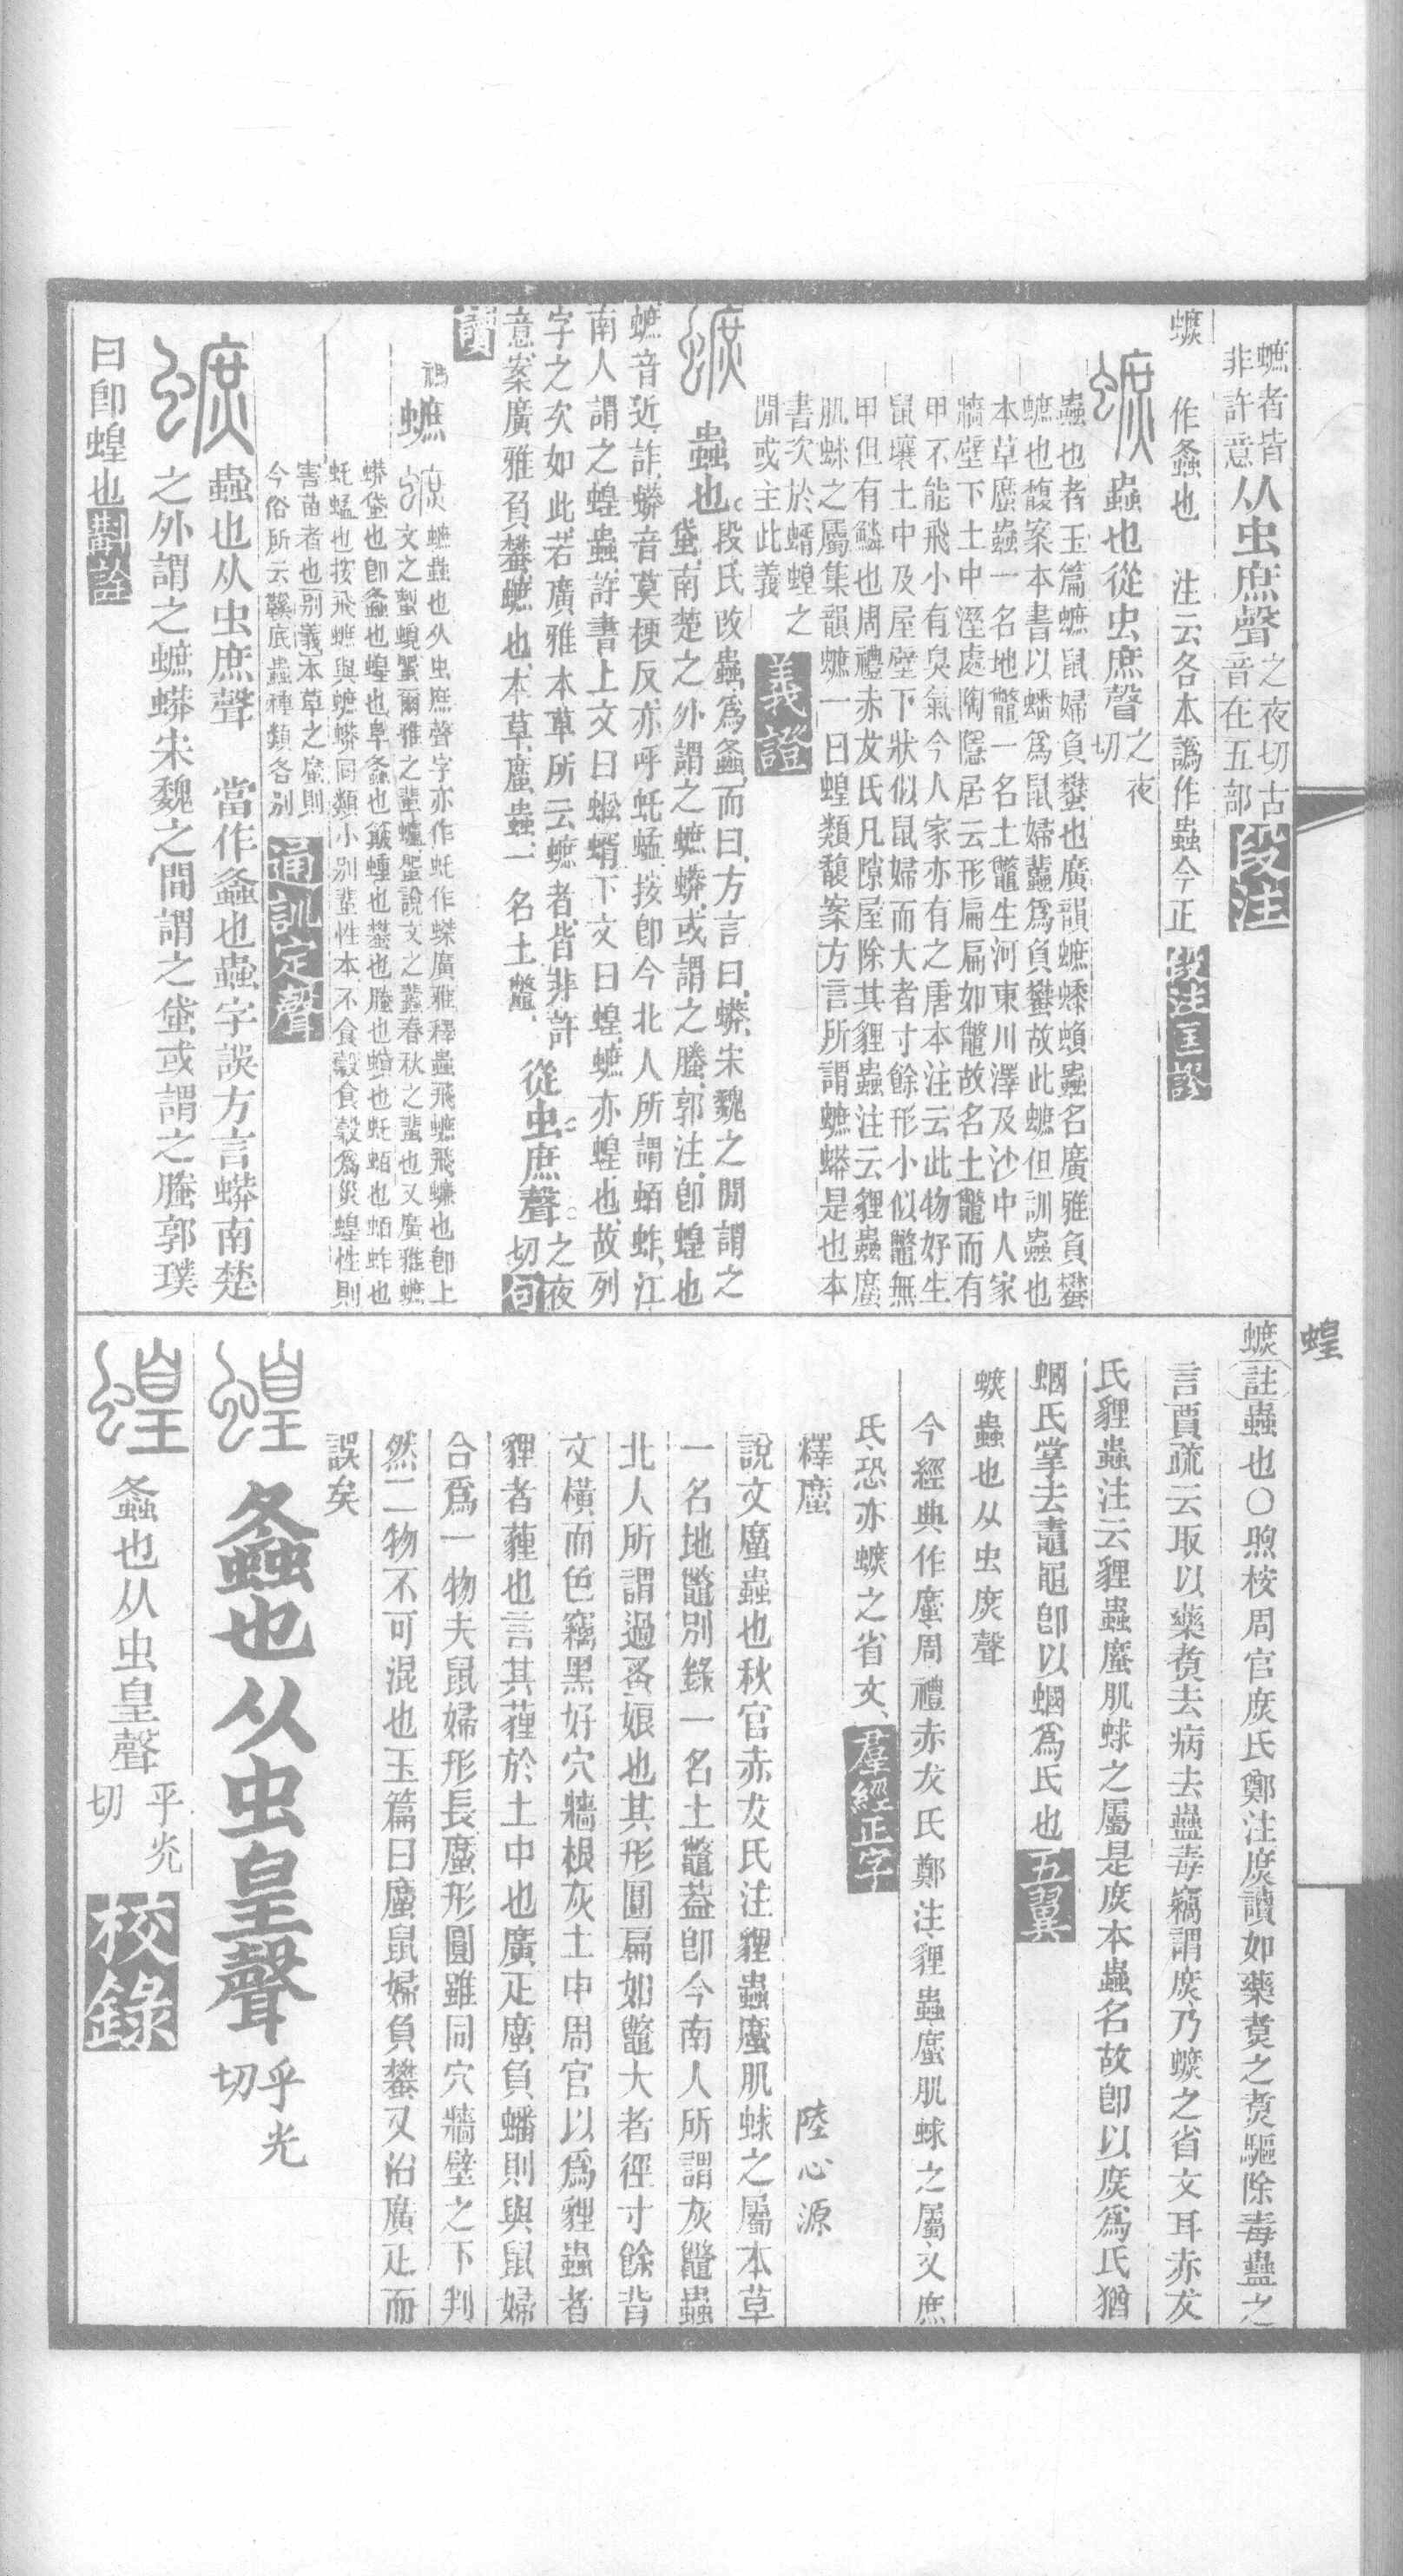 蟅者皆
非許意
从虫庶聲
之夜切古
音在五部
段注
蟅
作螽也
注云各本譌作蟲今正
段注匡謬
蟲也從虫庶聲
之夜
切
蟲也者玉篇蟅鼠婦負蠜也廣韻蟅蟧螇蟲名廣雅負蠜
蟅也馥案本書以蟠爲鼠婦蠹爲負蠜故此蟅但訓蟲也
本草䗪蟲一名地鼈一名土鼈生河東川澤及沙中人家
牆壁下土中溼處陶隱居云形扁扁如鼈故名土鼈而有
甲不能飛小有臭氣今人家亦有之唐本注云此物好生
鼠壤土中及屋壁下狀似鼠婦而大者寸餘形小似鼈無
甲但有鱗也周禮赤犮氏凡隙屋除其貍蟲注云貍蟲䗪
肌蛷之屬集韻蟅一曰蝗類馥案方言所謂蟅蟒是也本
書次於蝑蝗之
閒或主此義
義證
蟲也
段氏改蟲爲螽而曰方言曰蟒宋魏之閒謂之
䖧南楚之外謂之蟅蟒或謂之螣郭注卽蝗也
蟅音近詐蟒音莫梗反亦呼虴蜢按卽今北人所謂蛨蚱江
南人謂之蝗蟲許書上文曰蚣蝑下文曰蝗蟅亦蝗也故列
字之次如此若廣雅本草所云蟅者皆非許
意案廣雅負蠜蟅也本草䗪蟲一名土鼈
從虫庶聲
之夜
切
句
讀
蟅
蟅蟲也从虫庶聲字亦作虴作蠂廣雅釋蟲飛蟅飛蠊也卽上
今俗所云鞵底蟲種類各別
害苗者也別義本草之䗪則
通訓定聲
蟲也从虫庶聲　當作螽也蟲字誤方言蟒南楚
之外謂之蟅蟒宋魏之間謂之䖧或謂之螣郭璞
曰卽蝗也
斠詮
蝗
蟅註蟲也〇煦桉周官庶氏鄭注庶讀如藥煑之煑驅除毒蠱之
言賈疏云取以藥煑去病去蠱毒竊謂庶乃蟅之省文耳赤犮
氏貍蟲注云貍蟲䗪肌蛷之屬是庶本蟲名故卽以庶爲氏猶
蟈氏掌去鼃黽卽以蟈爲氏也
五翼
蟅蟲也从虫庶聲
今經典作䗪周禮赤犮氏鄭注貍蟲䗪肌蛷之屬又庶
氏恐亦蟅之省文
羣經正字
釋䗪
陸心源
說文䗪蟲也秋官赤犮氏注貍蟲䗪肌蛷之屬本草
一名地鼈別錄一名土鼈葢卽今南人所謂灰鼈蟲
北人所謂過蚤娘也其形圓扁如鼈大者徑寸餘背
文橫而色竊黑好穴牆根灰土中周官以爲貍蟲者
貍者薶也言其薶於土中也廣疋䗪負蟠則與鼠婦
合爲一物夫鼠婦形長䗪形圓雖同穴牆壁之下判
然二物不可混也玉篇曰䗪鼠婦負蠜又沿廣疋而
誤矣
螽也从虫皇聲
乎光
切
螽也从虫皇聲
乎光
切
校錄